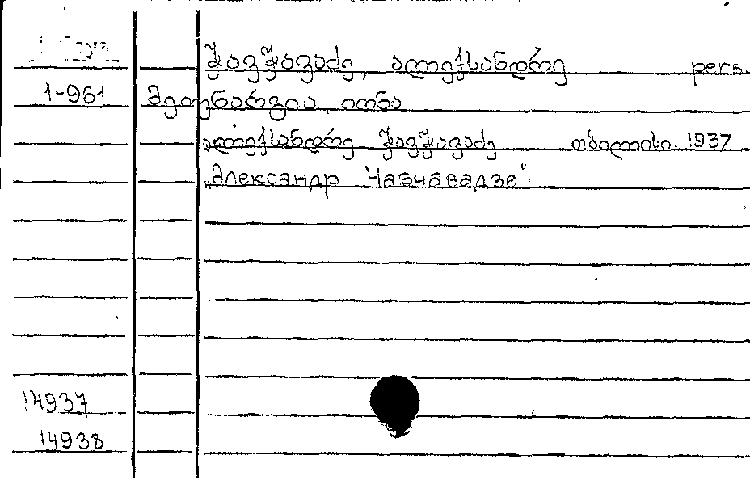 ჭავჭავაძე, ალექსანდრე pers.
1-961 მეუნარგია, იონა
ალექსანდრე ჭავჭავაძე თბილისი. 1937
"Александр Чавчавадзе"
14937
14938